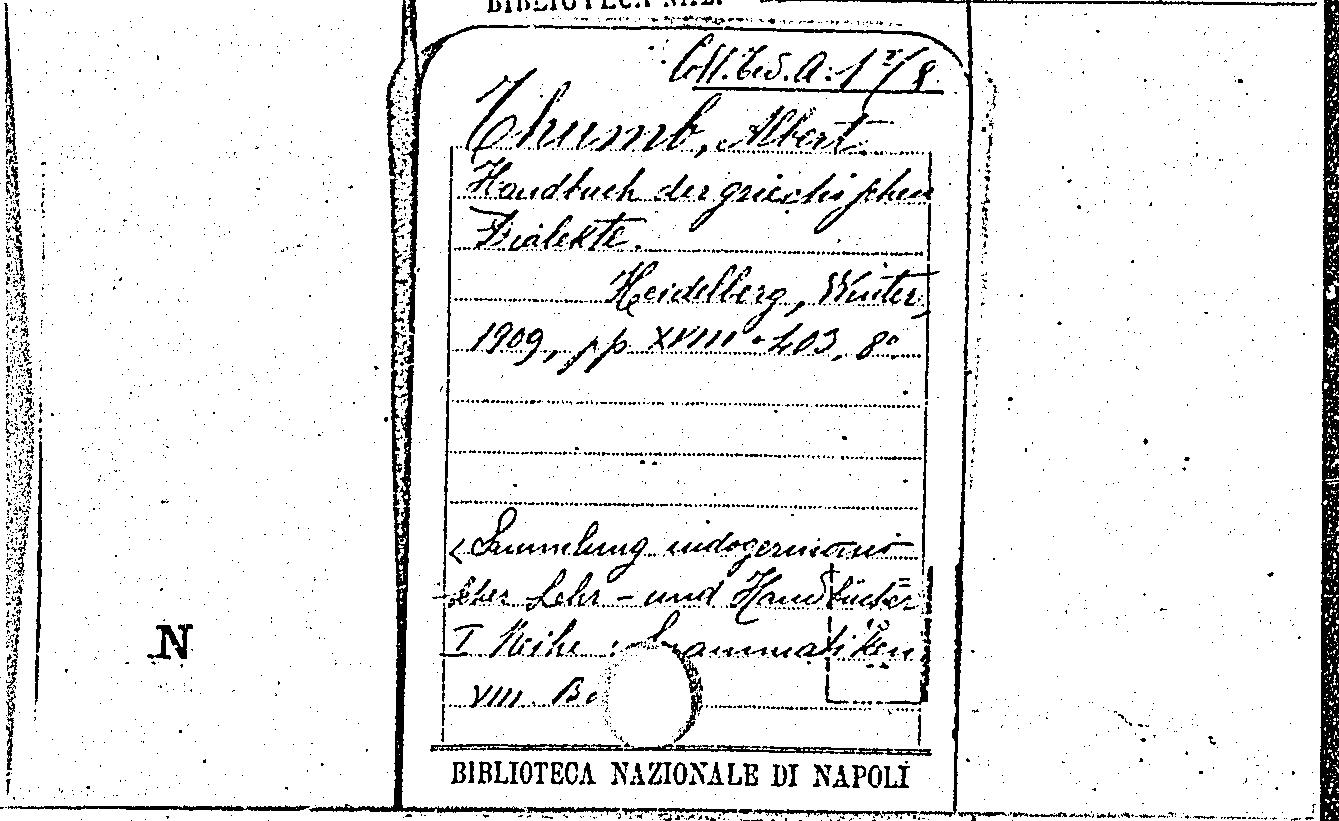 BIBLIOTECA NAZ.
Coll. Ted. A. 1 V/8.
Thumb, Albert.
Handbuch der griechischen
Dialekte.
Heidelberg, Winter,
1909, pp XVIII-403, 8°.
(Sammlung indogermani-
scher Lehr- und Handbücher
I Reihe: Grammatiken
VIII. B
N
BIBLIOTECA NAZIONALE DI NAPOLI